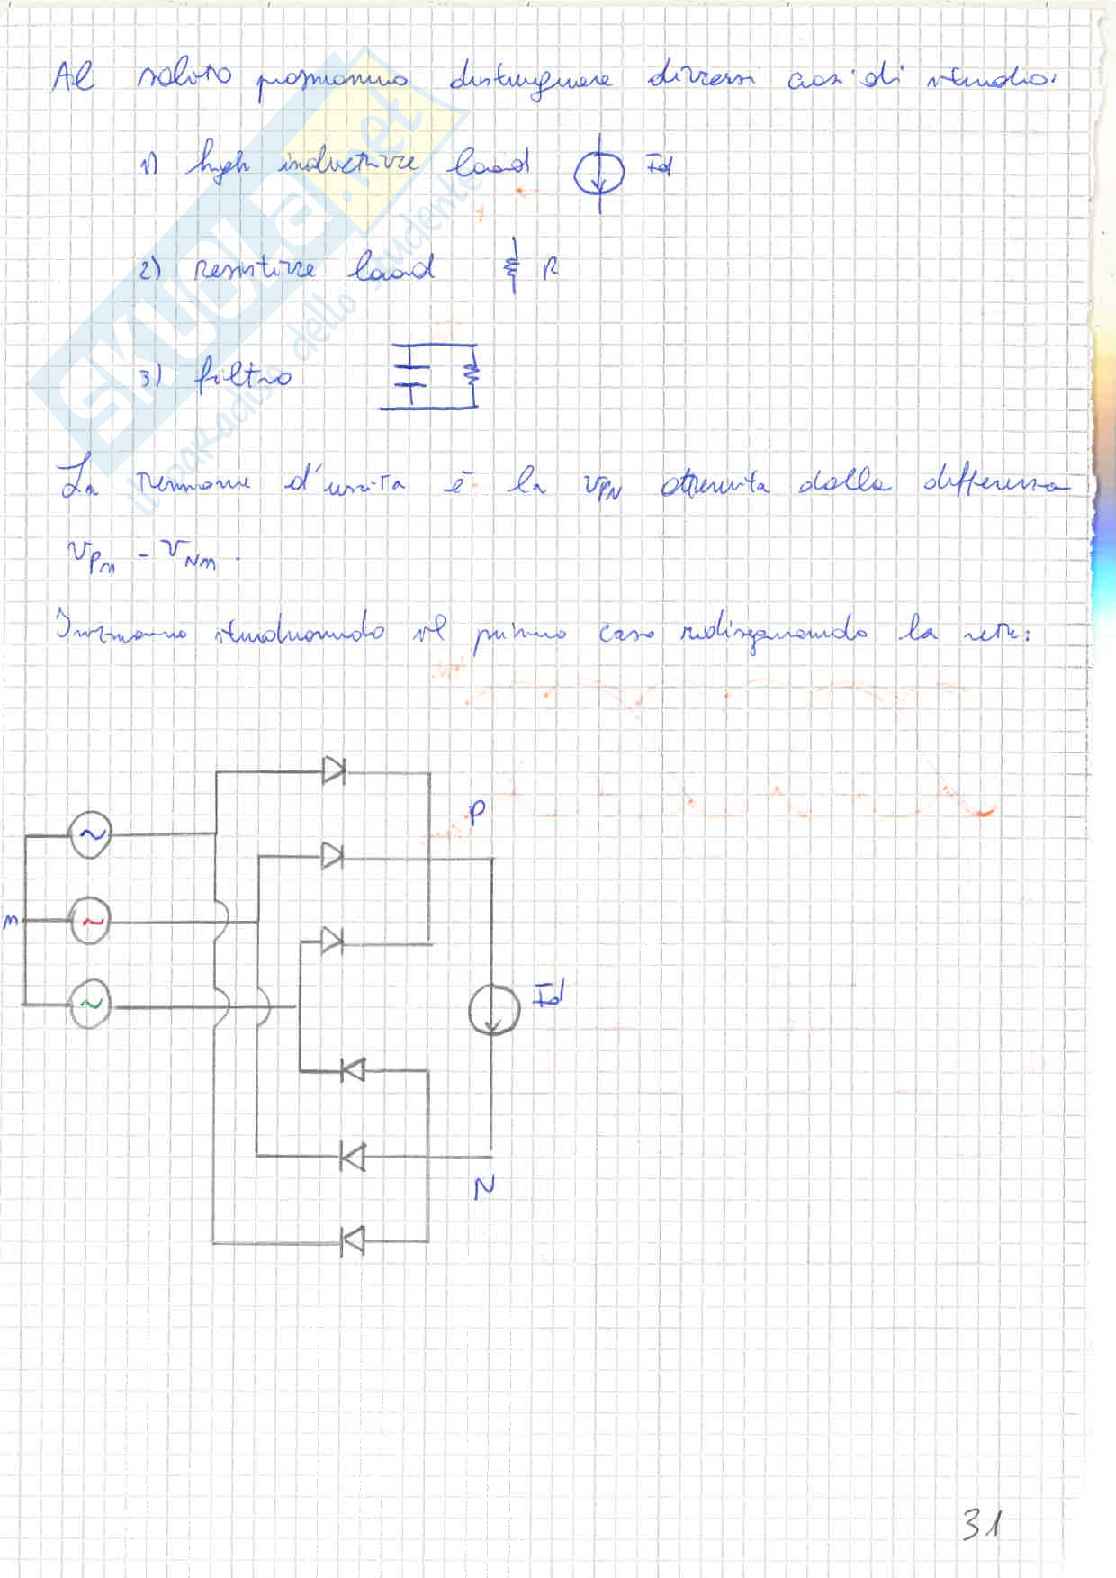 Al solito possiamo distinguere diversi casi di studio.
1) high inductive load Id
2) resistive load R
3) filtro
La tensione d'uscita è la vPN ottenuta dalla differenza
vPn - vNn.
Iniziamo studiando il primo caso ridisegnando la rete:
P
~
~
n
~
~
Id
N
31
SKUOLA.net
il paradiso dello studente